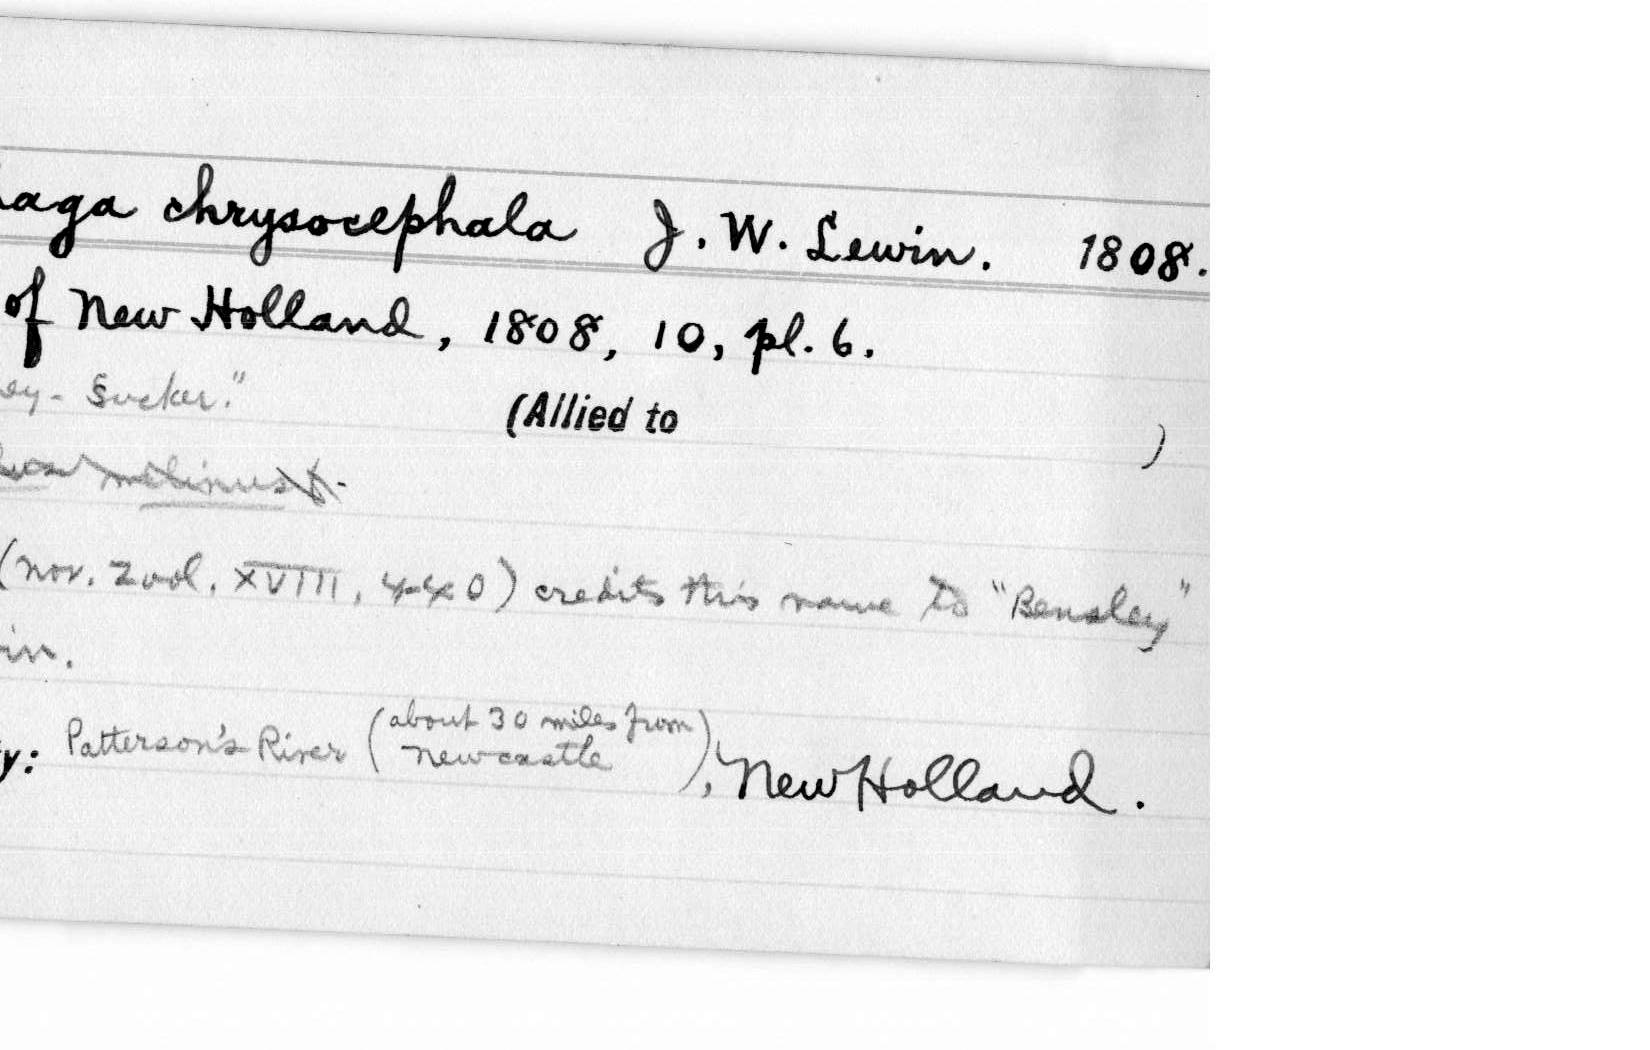 haga chrysocephala J. W. Lewin. 1808.
of New Holland, 1808, 10, pl. 6.
ey-Sucker."
(Allied to )
melinus
(Nov. Zool. XVIII, 440) credits this name to "Bensley"
in.
y: Patterson's River (about 30 miles from Newcastle), New Holland.